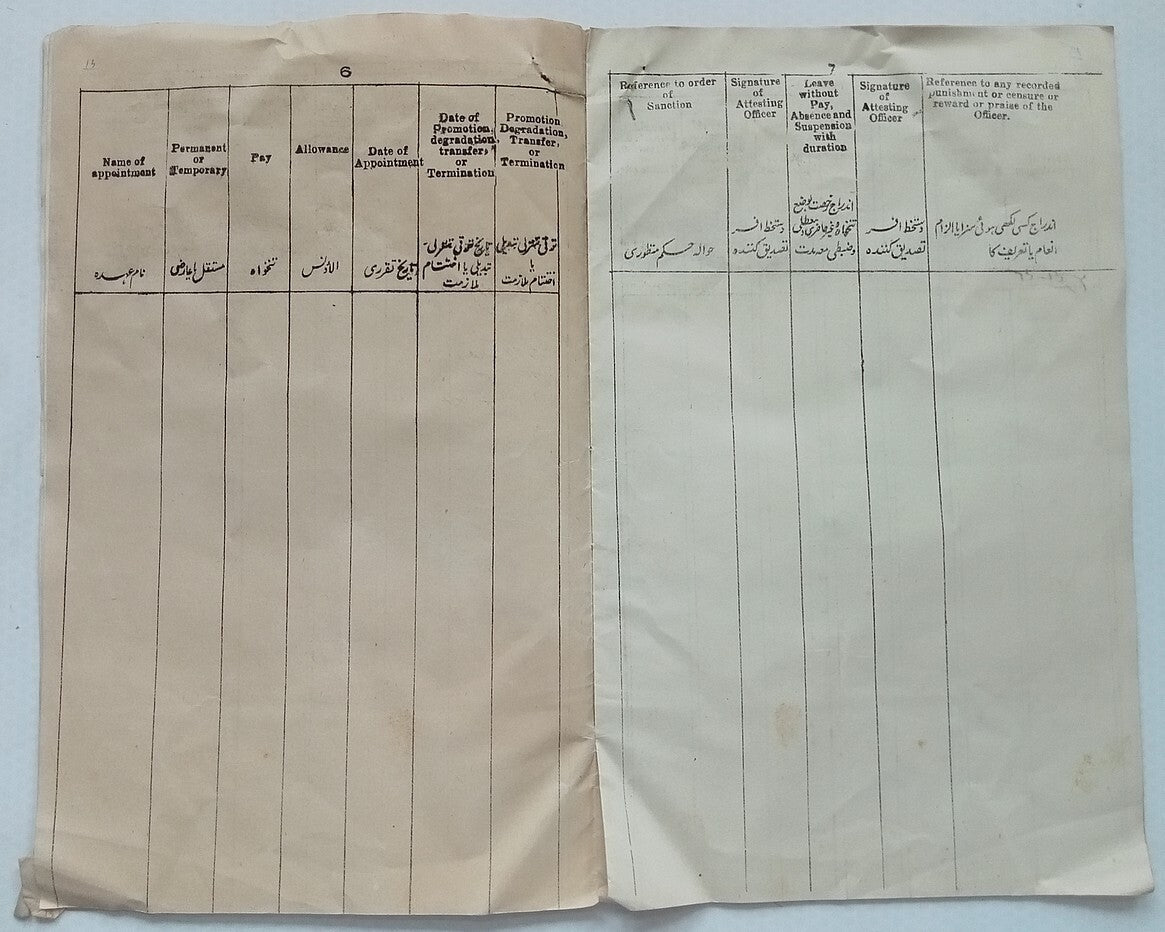 6
Name of
appointment
Permanent
or
Temporary
Pay
Allowance
Date of
Appointment
Date of
Promotion,
degradation,
transfer,
or
Termination
Promotion
Degradation,
Transfer,
or
Termination
نام عہدہ
مستقل یا عارضی
تنخواہ
الاؤنس
تاریخ تقرری
تبدیلی یا اختتام
ملازمت
ترقی تنزلی تبدیلی
یا
اختتام ملازمت
7
Reference to order
of
Sanction
Signature
of
Attesting
Officer
Leave
without
Pay,
Absence and
Suspension
with
duration
Signature
of
Attesting
Officer
Reference to any recorded
punishment or censure or
reward or praise of the
Officer.
حوالہ حکم منظوری
دستخط افسر
تصدیق کنندہ
اندراج رخصت بوضع
دستخط افسر
تصدیق کنندہ
اندراج کسی لکھی ہوئی سزا یا الزام
انعام یا تعریف کا